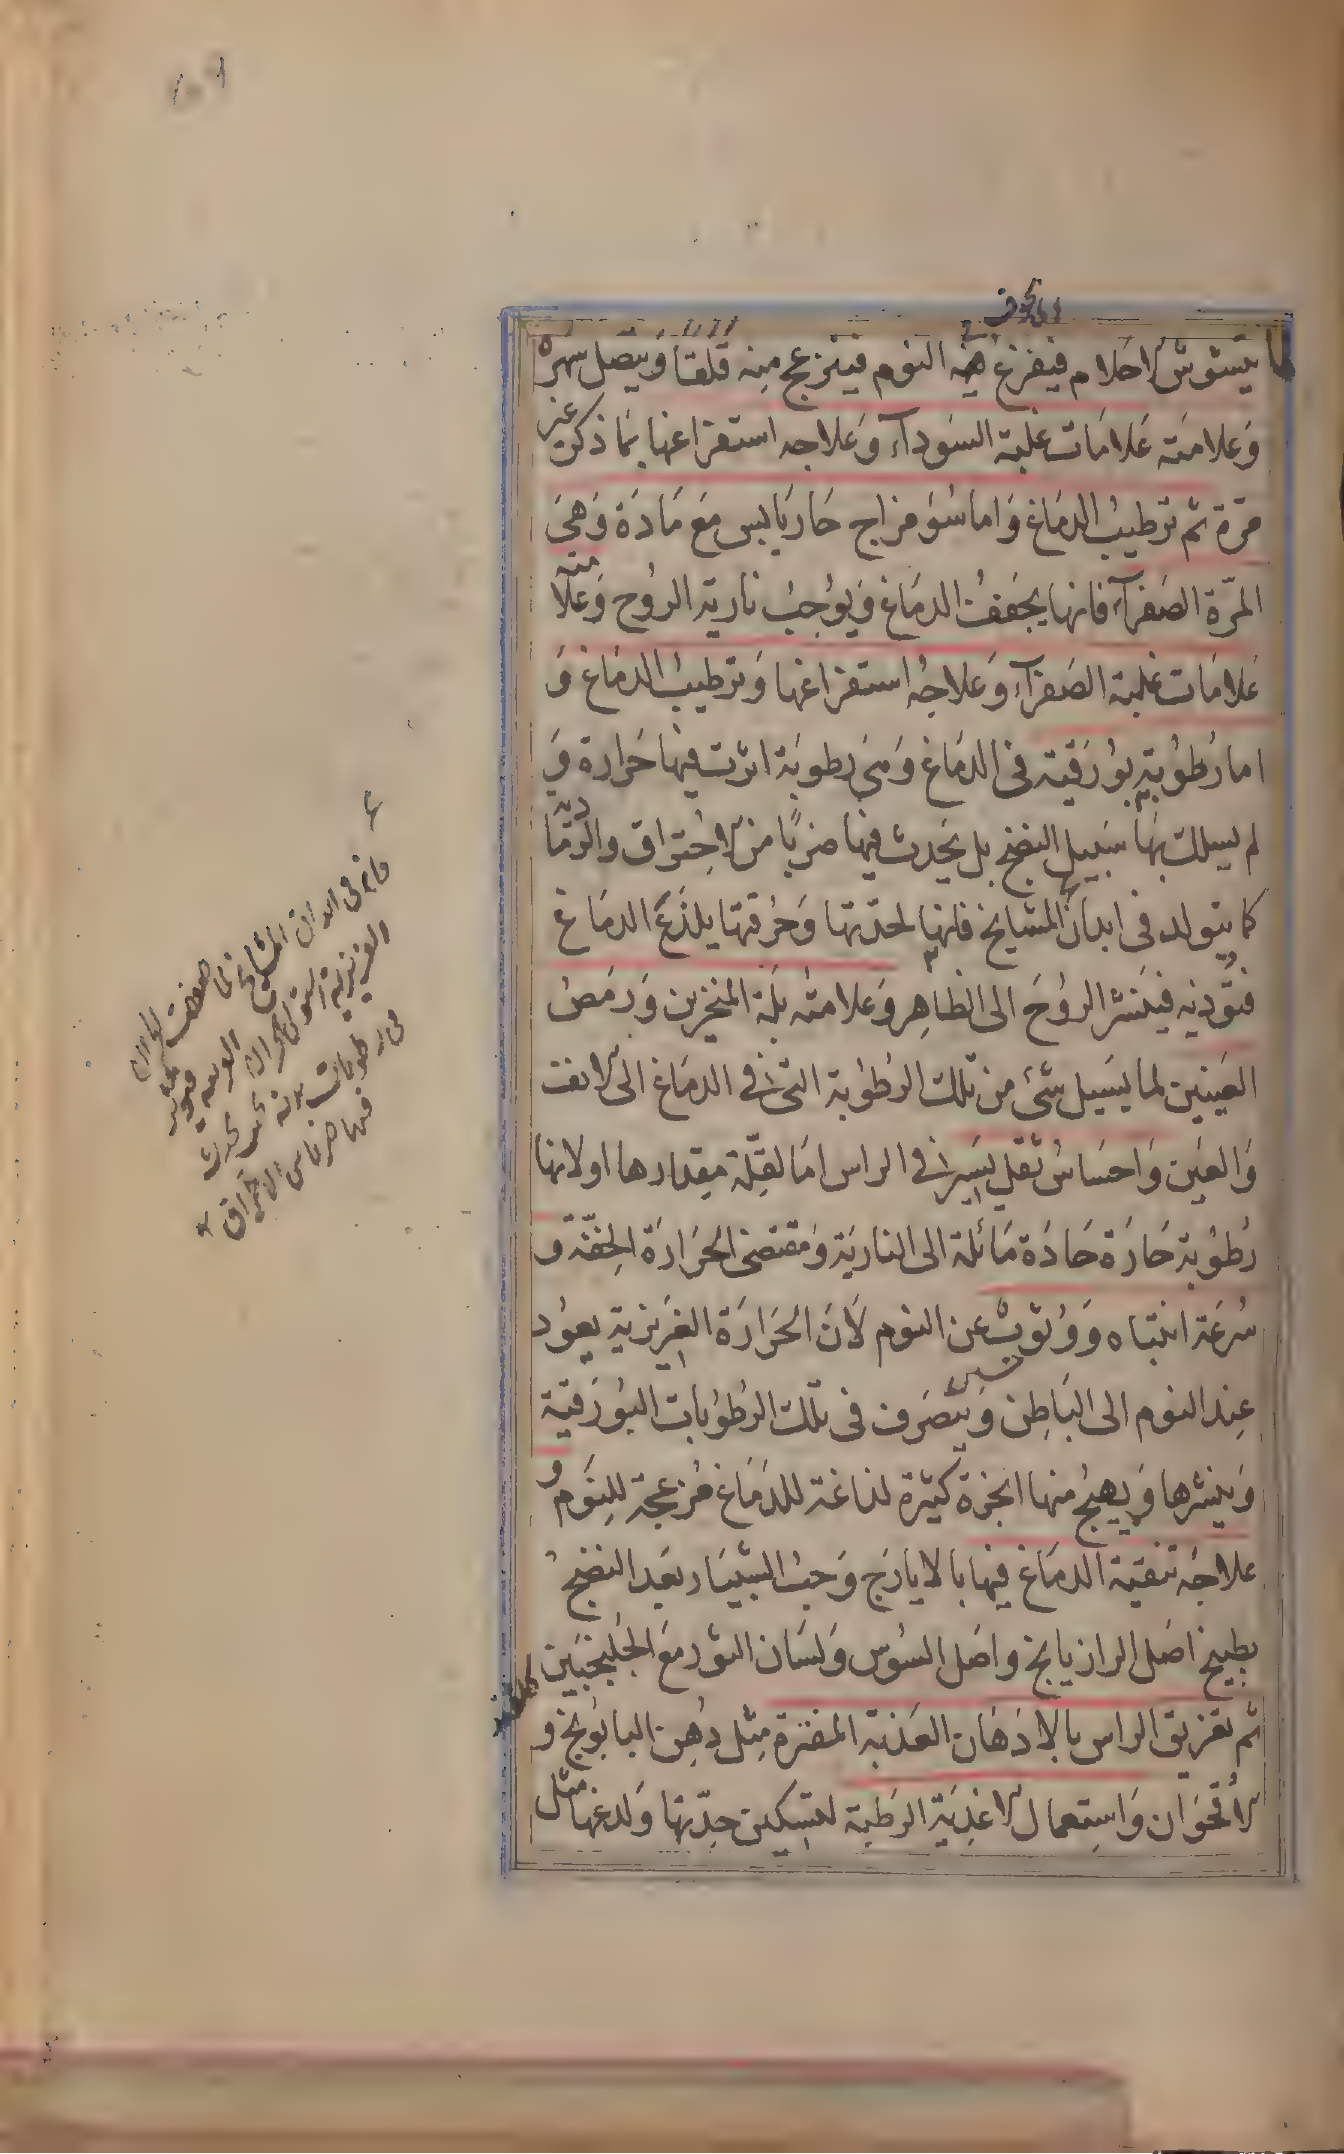 يتشوش الاحلام فيفزع فيه النوم فينزعج منه قلقا ويتصل سهره
وعلامته علامات غلبة السوداء وعلاجه استفراغها بما ذكر غير
مرة ثم ترطيب الدماغ واما سوء مزاج حار يابس مع مادة وهي
المرّة الصفراء فانها يجفف الدماغ ويوجب نارية الروح وعلامته
علامات غلبة الصفراء وعلاجه استفراغها وترطيب الدماغ و
اما رطوبة بورقية في الدماغ وهي رطوبة اثرت فيها حرارة و
لم يسلك بها سبيل النضج بل يحدث فيها ضربا من الاحتراق والرمادية
كما يتولد في ابدان المشايخ فانها لحدتها وحرقتها يلذع الدماغ
فتؤذيه فينشر الروح الى الظاهر وعلامته بلة المنخرين ورمص
العينين لما يسيل شئ من تلك الرطوبة التي في الدماغ الى الانف
والعين واحساس ثقل يسير في الراس اما لقلّة مقدارها او لانها
رطوبة حارة حادة مائلة الى النارية ومقتضى الحرارة الخفّة و
سرعة انتباه ووثوب عن النوم لان الحرارة الغريزية يعود
عند النوم الى الباطن ويتصرف في تلك الرطوبات البورقية
وينشرها ويهيج منها ابخرة كثيرة لذاغة للدماغ مزعجة للنوم و
علاجه تنقية الدماغ فيها بالايارج وحب الشبيار بعد النضج
بطبيخ اصل الرازيانج واصل السوس ولسان الثور مع الجلنجبين
ثم تغريق الراس بالادهان العذبة المفترة مثل دهن البابونج و
الاقحوان واستعمال الاغذية الرطبة لتسكين حدّتها ولدغها مثل
فانه في ابدان المشايخ
الغريزية
من رطوبات بدنه يحدث
فيها ضربا من الاحتراق